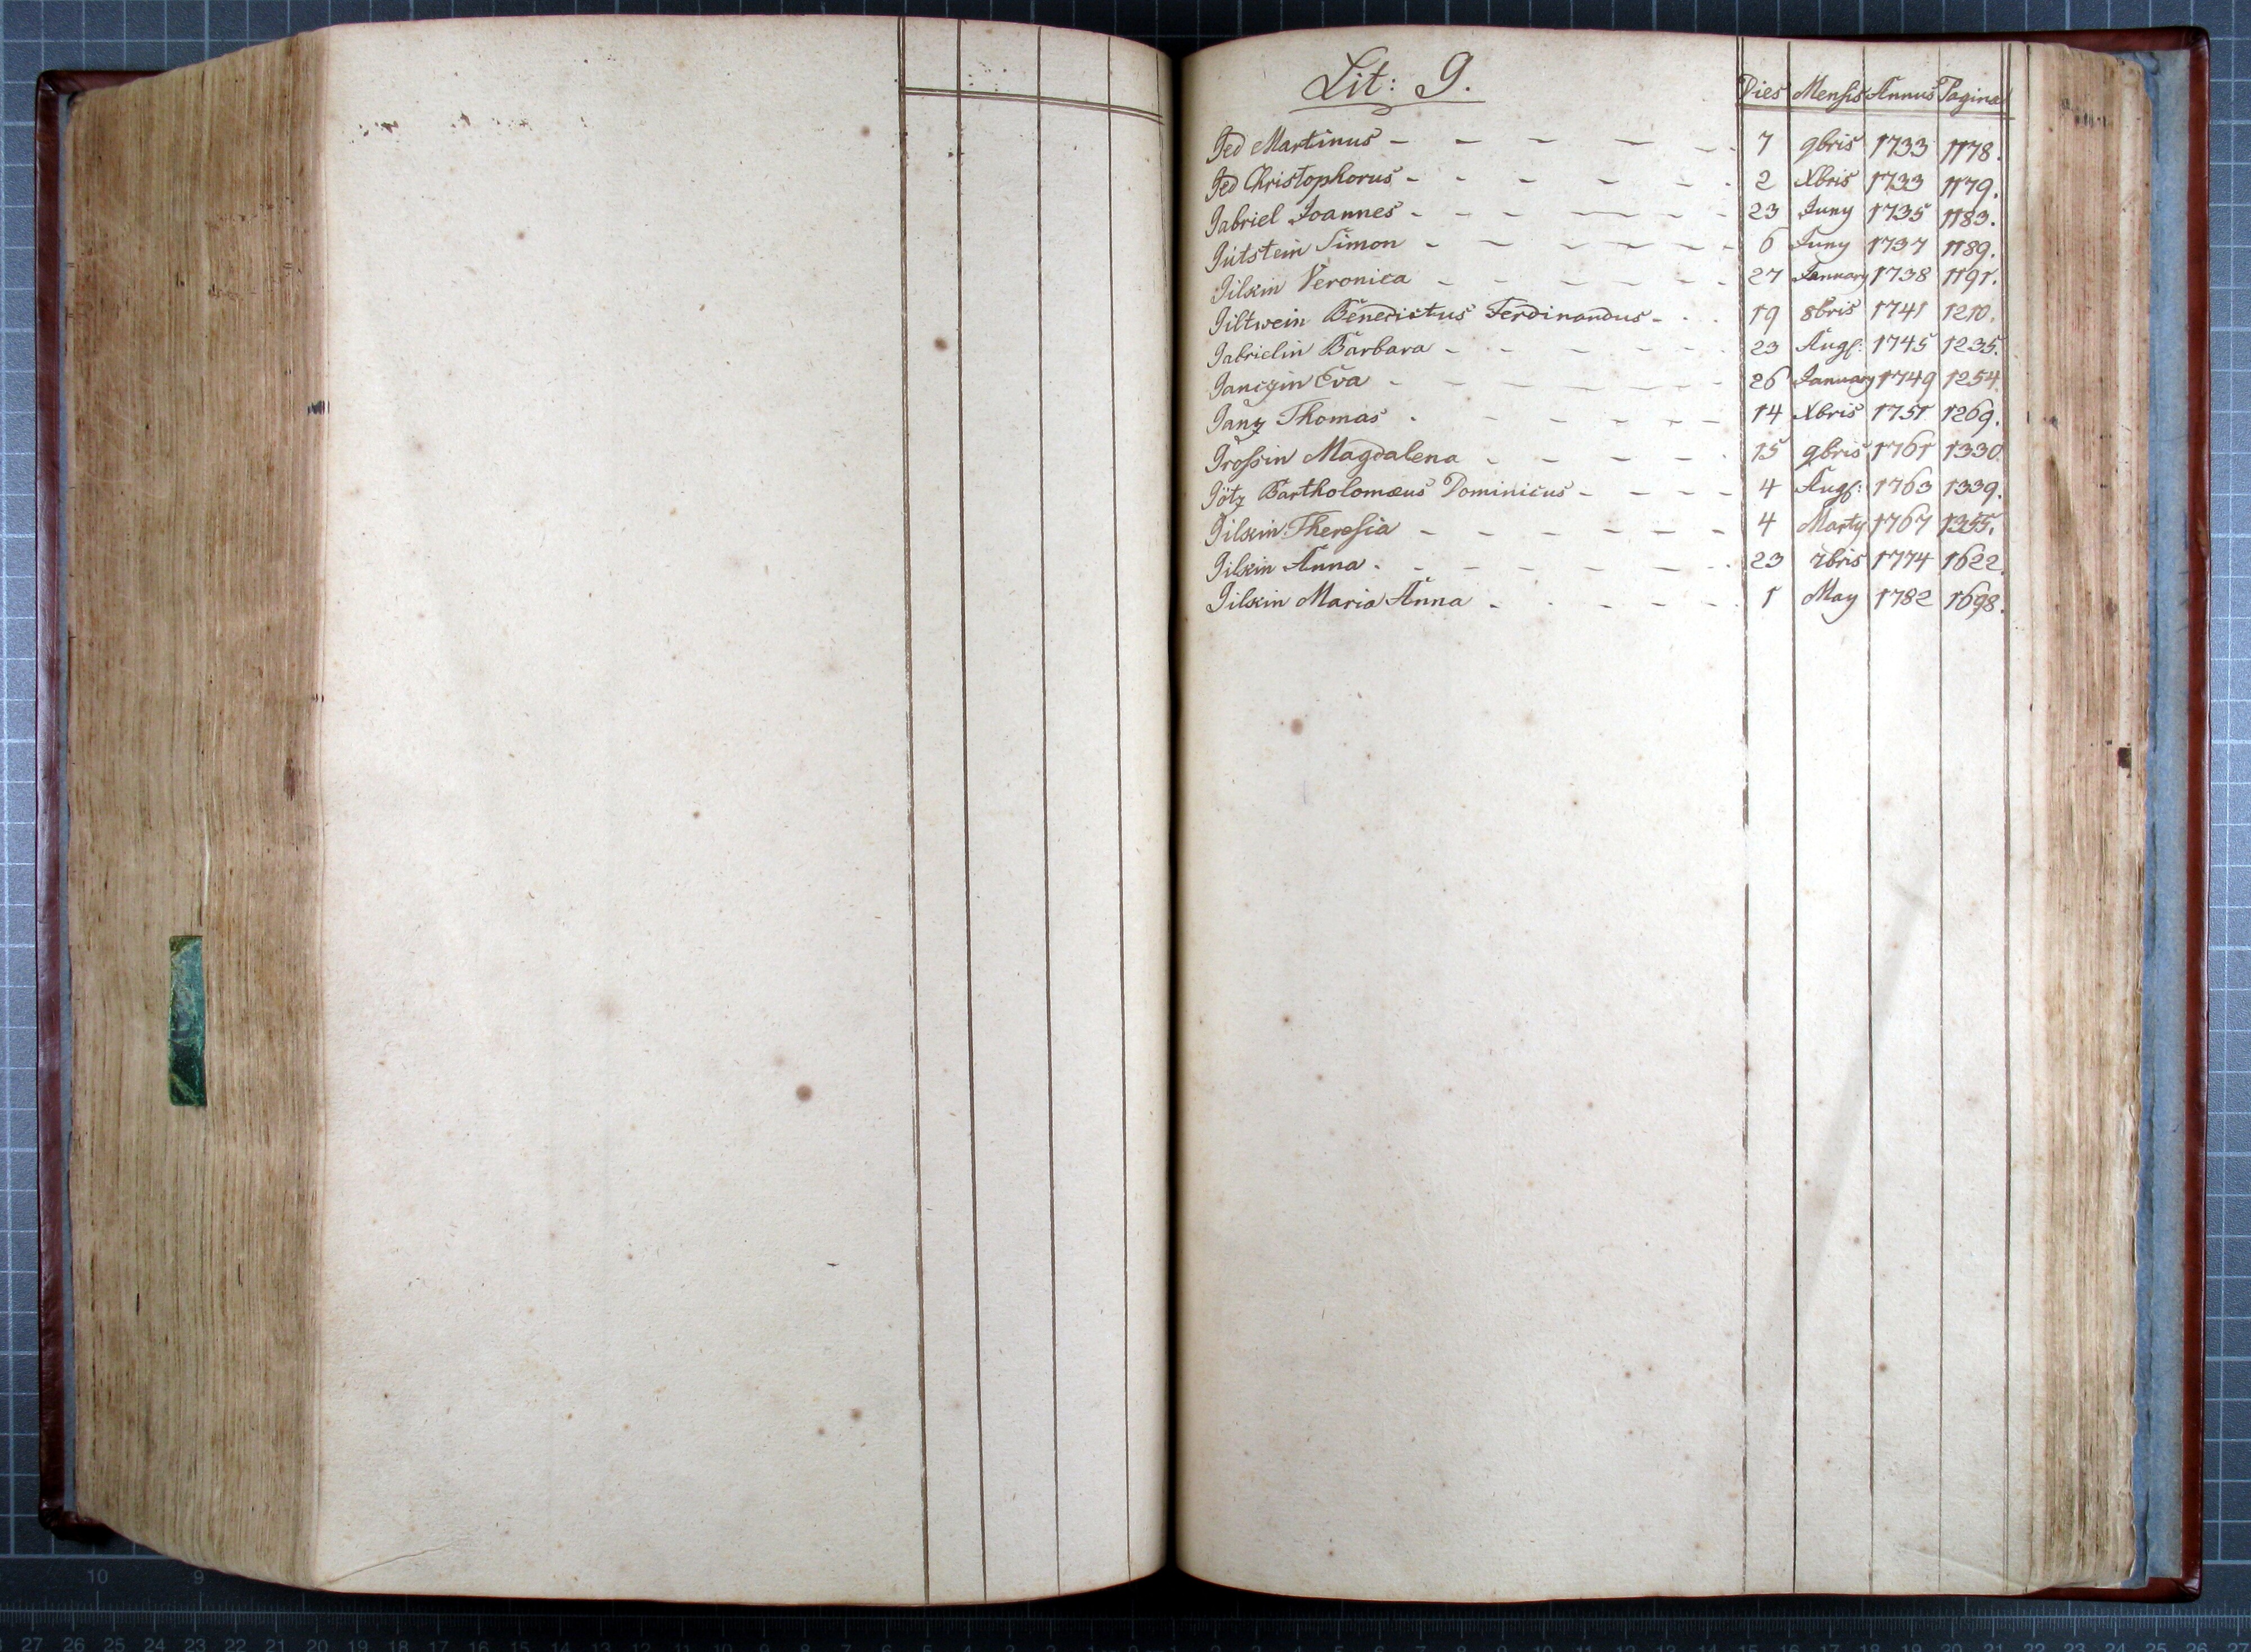 Lit: G.
Dies Mensis Annus Pagina
Ged Martinus 7 9bris 1733 1178.
Ged Christophorus 2 Xbris 1733 1179.
Gabriel Joannes 23 Juny 1735 1183.
Gutstein Simon 6 Juny 1737 1189.
Gilxin Veronica 27 January 1738 1191.
Giltwein Benedictus Ferdinandus 19 8bris 1741 1210.
Gabrielin Barbara 23 Augs: 1745 1235.
Ganczin Eva 26 January 1749 1254.
Ganz Thomas 14 Xbris 1751 1269.
Grossin Magdalena 15 9bris 1761 1330.
Götz Bartholomæus Dominicus 4 Augs: 1763 1339.
Gilxin Theresia 4 Marty 1767 1355.
Gilxin Anna 23 7bris 1774 1622.
Gilxin Maria Anna 1 May 1782 1698.